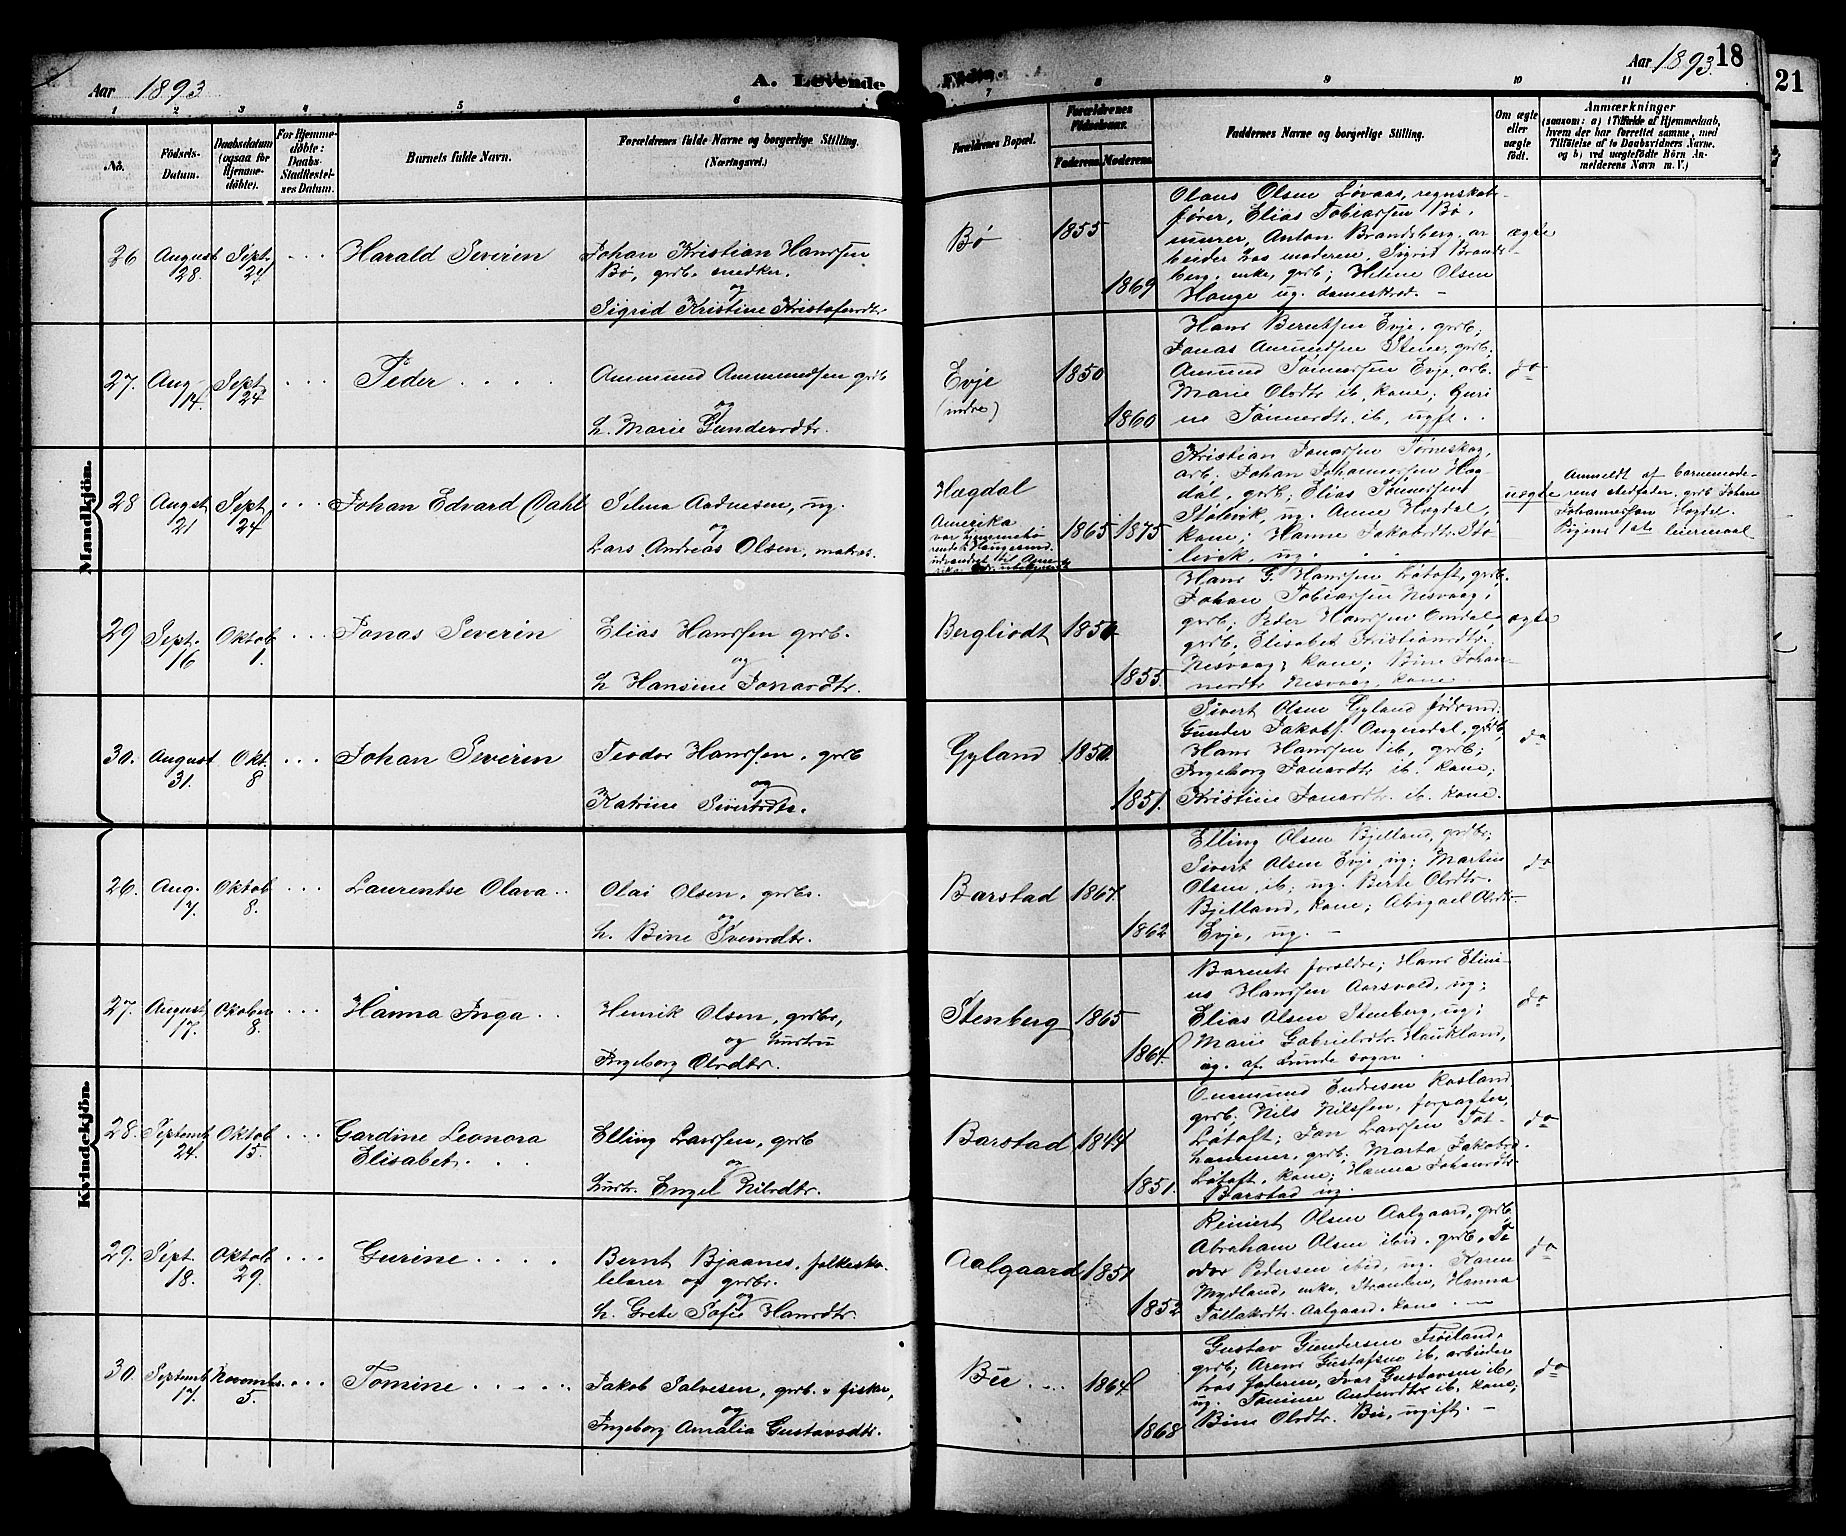 Aar 1893
A. Levende
Fødte.
Aar 1893. 18
21
1 2 3 4 5 6 7 8 9 10 11
No.
Fødsels-
Datum.
Daabsdatum
(ogsaa for
Hjemme-
døbte).
For Hjemme-
døbte:
Daabs-
Stadfæstel-
ses Datum.
Barnets fulde Navn.
Forældrenes fulde Navne og borgerlige Stilling.
(Næringsvei.)
Forældrenes Bopæl.
Forældrenes
Fødselsaar.
Faderens. Moderens.
Faddernes Navne og borgerlige Stilling.
Om ægte
eller
uægte
født.
Anmærkninger
(saasom: a) i Tilfælde af Hjemmedaab,
hvem der har forrettet samme, med
Tilføielse af to Daabsvidners Navne.
og b) ved uægtefødte Börn An-
melderens Navn m. V.)
Mandkjön.
26 August 28. Sept. 24 Harald Severin
Johan Kristian Hanssen
Bø, grdb. snedker.
og
Sigrid Kristine Kristofersdtr
Bø 1855 1869
Olaus Olsen Løvaas, regnskab-
fører, Elias Tobiassen Bø,
murer, Anton Brandsberg, ar-
beider hos moderen, Sigrid Brands-
berg, enke, grdb; Heline Olsen
Hauge ug. dameskræd. –
ægte
27. Aug. 14. Sept 24 Peder
Ammund Ammundsen grdb
og
h. Marie Gundersdtr.
Evje
(indre)
1850 1860
Hans Berntsen Evje, grdb;
Jonas Aamundsen Stene, grdb;
Amund Tønnessen Evje, arb.
Marie Olsdtr ib, kone; Guri-
ne Tønnesdtr. ib, ugift.
do
28 August 21 Sept. 24 Johan Edvard (Dahl
Selma Aadnesen, ug.
og
Lars Andreas Olsen, matros.
Hægdal
Amerika
1865 1875
Kristian Jonassen Tørneskog,
arb. Johan Johannessen Hæg-
dal, grdb; Elias Tønnessen
Stølsvik, ug. Anne Hægdal,
kone; Hanne Jakobsdtr. Stø-
lsvik, ug.
uægte
Anmeldt af barnemode-
rens stedfader, grdb Johan
Johannessen Hægdal.
Pigens 1ste leiermaal
29 Sept. 16 Oktob 1. Jonas Severin
Elias Hanssen grdb.
og
h Hansine Jonasdtr.
Bergliodt 1855.
Hans G. Hanssen Løtoft, grdb.
Johan Tobiassen Nesvaag,
grdb; Peder Hanssen Omdal,
grdb, Elisabet Kristiansdtr.
Nesvaag, kone; Bine Johan-
nesdtr Nesvaag, kone
ægte
30. August 31. Okt. 8 Johan Severin
Teodor Hanssen, grdb
og
Katrine Sivertsdtr.
Gyland 1850. 1851.
Sivert Olsen Gyland føderaad;
Gunder Jakobs. Ougendal, grdb,
Hans Hanssen ib, grdb;
Ingeborg Jonasdtr ib. kone;
Kristine Jonasdtr. ib. kone.
do
Kvindekjön.
26 Aug. 7. Oktob 8. Laurentse Olava
Olai Olsen, grdbr.
og
h. Bine Svensdtr.
Barstad 1867. 1862
Elling Olsen Bjelland, grdbr;
Sivert Olsen Evje, ug; Martin
Olsen, ib; ug. Berte Olsdtr.
Bjelland, kone; Abigael Olsdtr
Evje, ug. –
do
27. August, 17. Oktober 8. Hanna Inga
Henrik Olsen, grdbr,
og hustru
Ingeborg Olsdtr.
Stenberg 1865 1864.
Barnets foreldre; Hans Elini-
us Hanssen Aarsvold, ug;
Elias Olsen Stenberg, ug;
Marie Gabrielsdtr. Haukland,
ug. af Lunde sogn
do
28. Septemb 24. Oktob 15. Gardine Leonora
Elisabet
Elling Larssen, grdb
og
hustr. Engel Nilsdtr.
Barstad 1851.
Ommund Endresen Rosland
grdb. Nils Nilssen, forpagter,
Løtoft; Jon Larssen Tot-
hammer, grdb; Marta Jakobsd.
Løtoft, kone; Hanna Johansdtr.
Barstad ug.
do
29. Sept. 18. Oktob 29. Gurine
Bernt Bjaanes, folkesko-
lelærer og grdbr.
og
h. Grete Sofie Hansdtr.
Aalgaard 1851 1852
Reinert Olsen Aalgaard, grdb
Abraham Olsen ibid, grdb, Te-
odor Pedersen ibid, ug. Karen
Mydland, enke, Stranden, Hanna
Tollaksdtr. Aalgaard, kone
do
30. Septemb 17. Novemb. 5. Tomine
Jakob Salvesen, grdb. & fisker,
og
Ingeborg Amalia Gustavsdtr.
Bø 1864 1868
Gustav Gundersen Frøiland,
grdb; Arent Gustafsen ib, arbeider
hos faderen, Ivar Gustavsen ib,
ug. Tomine Andersdtr ib, kone;
Bine Olsdtr. Bø, ugift. –
do